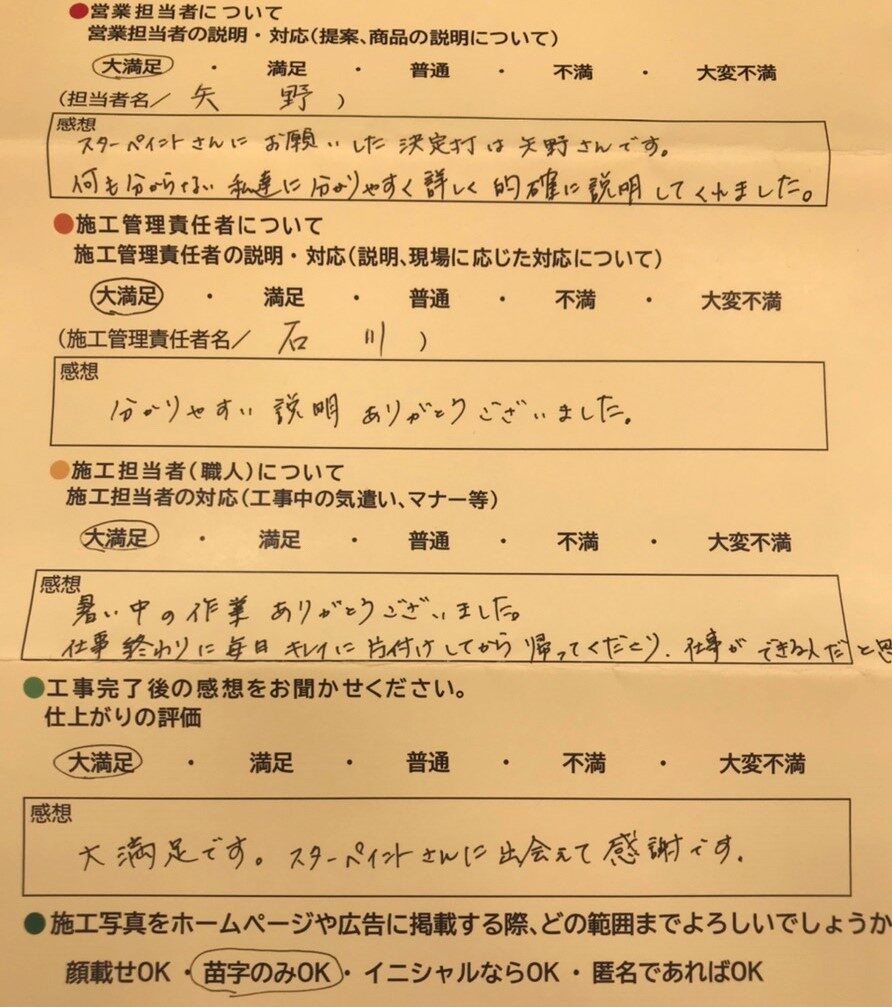 ●営業担当者について
営業担当者の説明・対応(提案、商品の説明について)
大満足 ・ 満足 ・ 普通 ・ 不満 ・ 大変不満
(担当者名/ 矢 野 )
感想
スターペイントさんに お願いした 決定打は 矢野さんです。
何も分からない 私達に 分かりやすく 詳しく 的確に 説明してくれました。
●施工管理責任者について
施工管理責任者の説明・対応(説明、現場に応じた対応について)
大満足 ・ 満足 ・ 普通 ・ 不満 ・ 大変不満
(施工管理責任者名/ 石 川 )
感想
分かりやすい 説明 ありがとうございました。
●施工担当者(職人)について
施工担当者の対応(工事中の気遣い、マナー等)
大満足 ・ 満足 ・ 普通 ・ 不満 ・ 大変不満
感想
暑い中の作業 ありがとうございました。
仕事 終わりに 毎日 キレイに 片付けしてから 帰ってくださり、仕事が できる人だと思
●工事完了後の感想をお聞かせください。
仕上がりの評価
大満足 ・ 満足 ・ 普通 ・ 不満 ・ 大変不満
感想
大満足です。スターペイントさんに 出会えて 感謝です。
●施工写真をホームページや広告に掲載する際、どの範囲までよろしいでしょうか
顔載せOK・苗字のみOK・イニシャルならOK・匿名であればOK